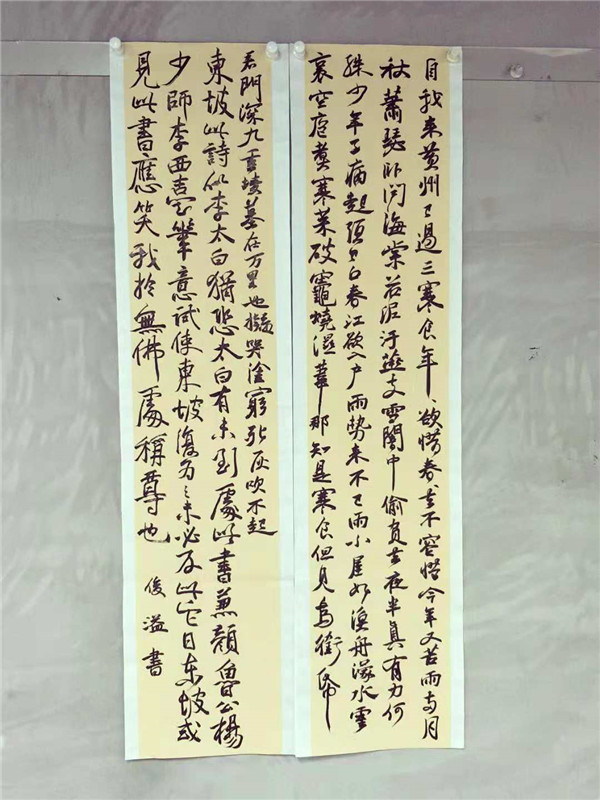 自我来黄州已過三寒食年、欲惜春、去不容惜今年又苦雨兩月
秋蕭瑟卧闻海棠花泥汙燕支雪闇中偷負去夜半真有力何
殊少年子病起頭已白春江欲入户雨勢来不已雨小屋如漁舟濛水雲
裏空庖煮寒菜破竈燒濕葦那知是寒食但見烏銜帋
君門深九重墳墓在万里也擬哭塗窮死灰吹不起
東坡此詩似李太白猶恐太白有未到處此書兼顔魯公楊
少師李西臺筆意試使東坡復為之未必及此它日東坡或
見此書應笑我於無佛處稱尊也 俊溢書